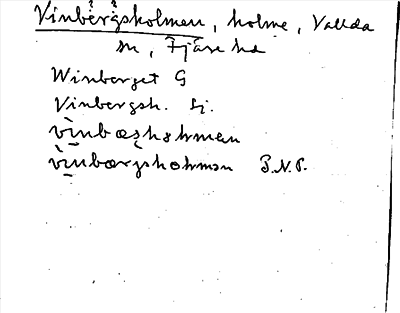 Vinbergsholmen, holme, Vallda
sn, Fjäre hd
Winberget G
Vinbergsh. Lj.
vìnbæs̨hɵlmen
vìnbærgshɵlmən P.N.P.